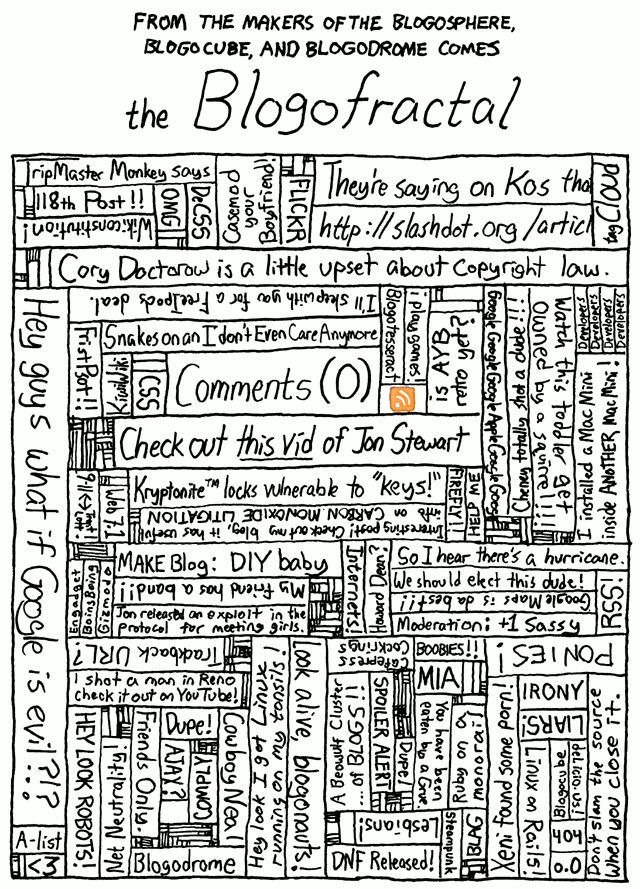 FROM THE MAKERS OF THE BLOGOSPHERE,
BLOGOCUBE, AND BLOGODROME COMES
the Blogofractal
TripMaster Monkey says
118th Post!!
Wikiconstitution!
OMG
DeCSS
Casemod
your
Boyfriend!
FLICKR
They're saying on Kos tha
http://slashdot.org/articl
tag Cloud
Cory Doctorow is a little upset about copyright law.
Hey guys what if Google is evil?!?
I'll sleep with you for a FreeIpods deal.
Snakes on an I don't Even Care Anymore
FristPsot!!
KiwiWiki
CSS
Comments (0)
Blogotesseract
i play games!
is AYB
retro yet?
Google Google Google Apple Google Google
Cheney totally shot a dude!!!
Watch this toddler get
Owned by a squirrel!!!
Developers
Developers
Developers
Developers
I installed a Mac Mini
inside ANOTHER Mac Mini!
Check out this vid of Jon Stewart
Web 7.1
Kryptonite™ locks vulnerable to "keys!"
Interesting post! Check out my blog, it has useful
info on CARBON MONOXIDE LITIGATION
FIREFLY!!
HELP ME
Engadget
BoingBoing
Gizmodo
MAKE Blog: DIY baby
My friend has a band!!
Jon released an exploit in the
protocol for meeting girls.
Internets!
Howard Dean?
So I hear there's a hurricane.
We should elect this dude!
Google Maps is da best!!
Moderation: +1 Sassy
RSS!
Trackback URL?
I shot a man in Reno
check it out on YouTube!
HEY LOOK ROBOTS!
Net Neutrality!
Friends Only.
Dupe!
AJAX?
COMPLY!
Cowboy Neal
Blogodrome
Hey look I got Linux
running on my tonsils!
Look alive, blogonauts!
Cafepress
Cockrings
A Beowulf Cluster
...of BLOGS!!
SPOILER ALERT!
Dupe!
BOOBIES!!
MIA
You have been
eaten by a Grue
Ruby on a
monorail
Lesbians!
DNF Released!
Steampunk
BLAG
PONIES!
Xeni found some porn!
IRONY
LIARS!
Linux on Rails!
Blogocube
del.icio.us!
404
0.0
Don't slam the source
when you close it.
A-list
<3